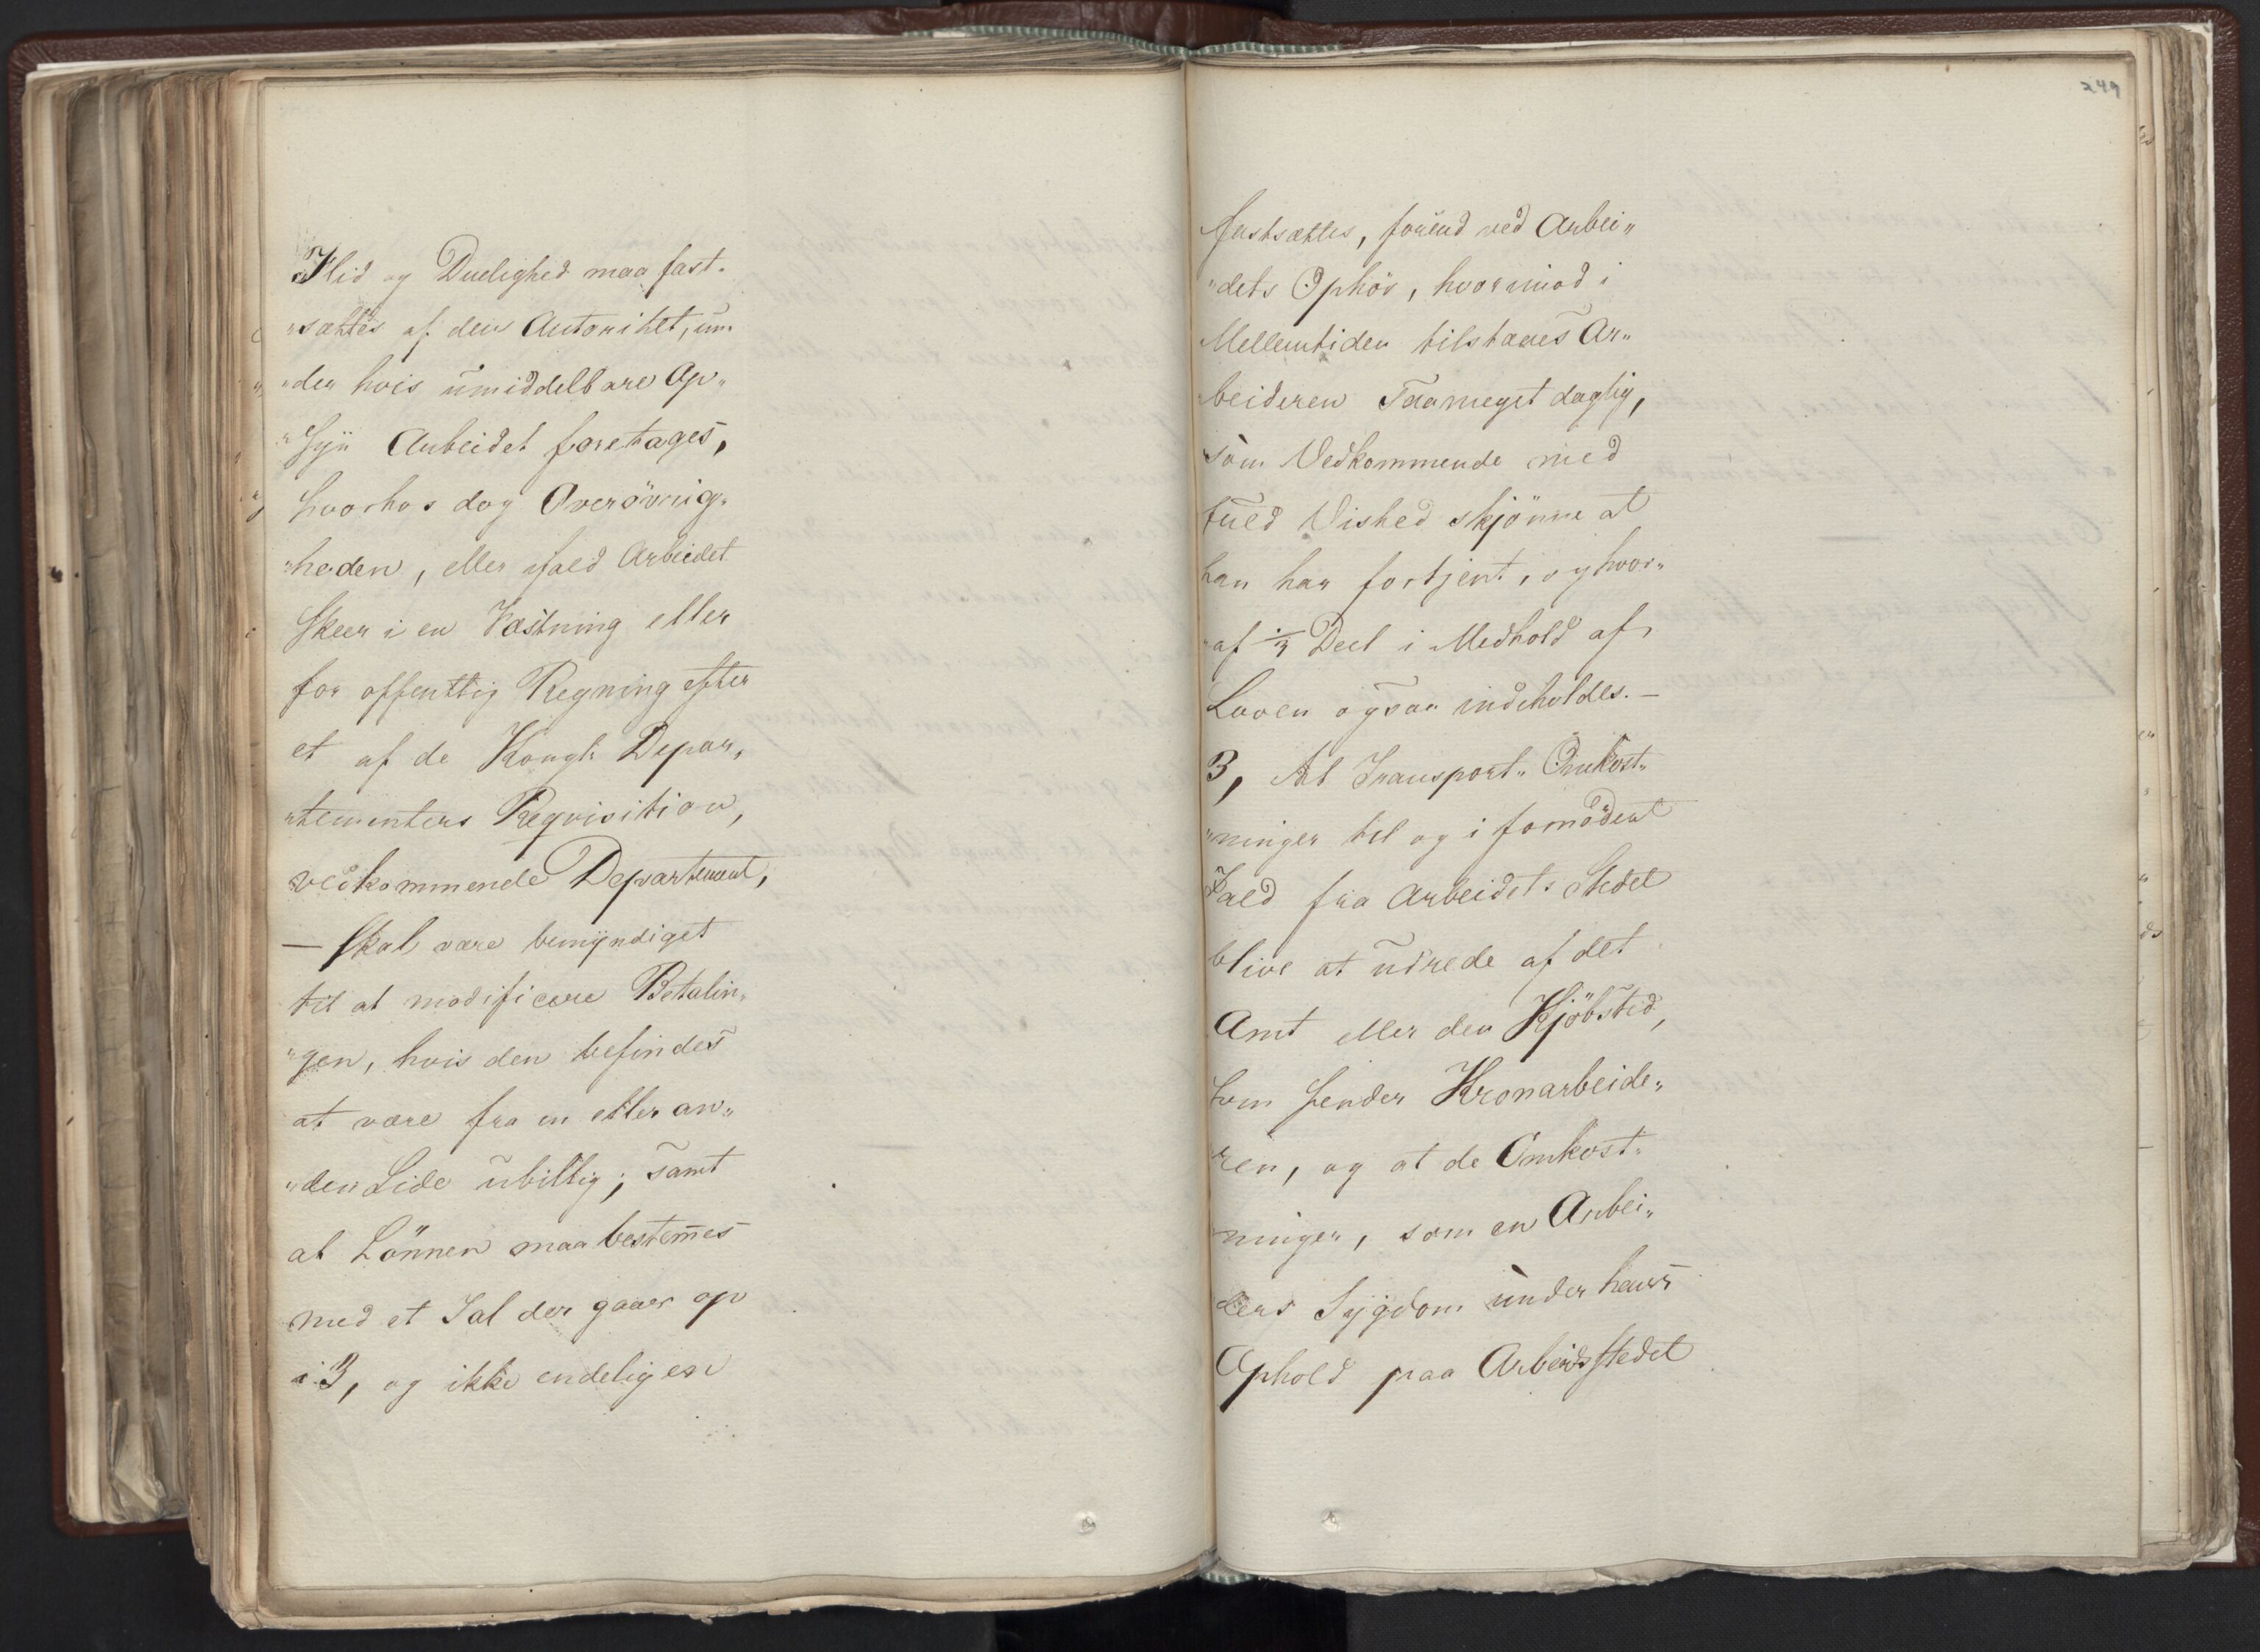 Flid og Duelighed maa fast-
"sættes af den Autoritet, un-
"der hvis umiddelbare Op-
"syn Arbeidet foretages,
hvorhos dog Overøvrig-
"heden, eller ifald Arbeidet
skeer i en Fæstning eller
for offentlig Regning efter
et af de Kongl: Depar-
"tementers Reqvisition,
vedkommende Departement,
— skal være bemyndiget
til at modificere Betalin-
"gen, hvis den befindes
at være fra en eller an-
"den Side ubillig; samt
at Lønnen maa bestem̅es
med et Tal der gaaer op
i 3, og ikke endeligen
249
fastsættes, forend ved Arbei-
"dets Ophør, hvorimod i
Mellemtiden tilstaaes Ar-
beideren saameget daglig,
som Vedkommende med
fuld Vished skjønne at
han har fortjent, og hvor-
"af 1/3 Deel i Medhold af
Loven ogsaa indeholdes. —
3, At Transport-Omkost-
"ninger til og i fornødent
Fald fra Arbeidets Stedet
blive at udrede af det
Amt eller den Kjøbsted,
som sender Kronarbeide-
ren, og at de Omkost-
ninger, som en Arbei-
ders Sygdom under hans
Ophold paa Arbeidsstedet